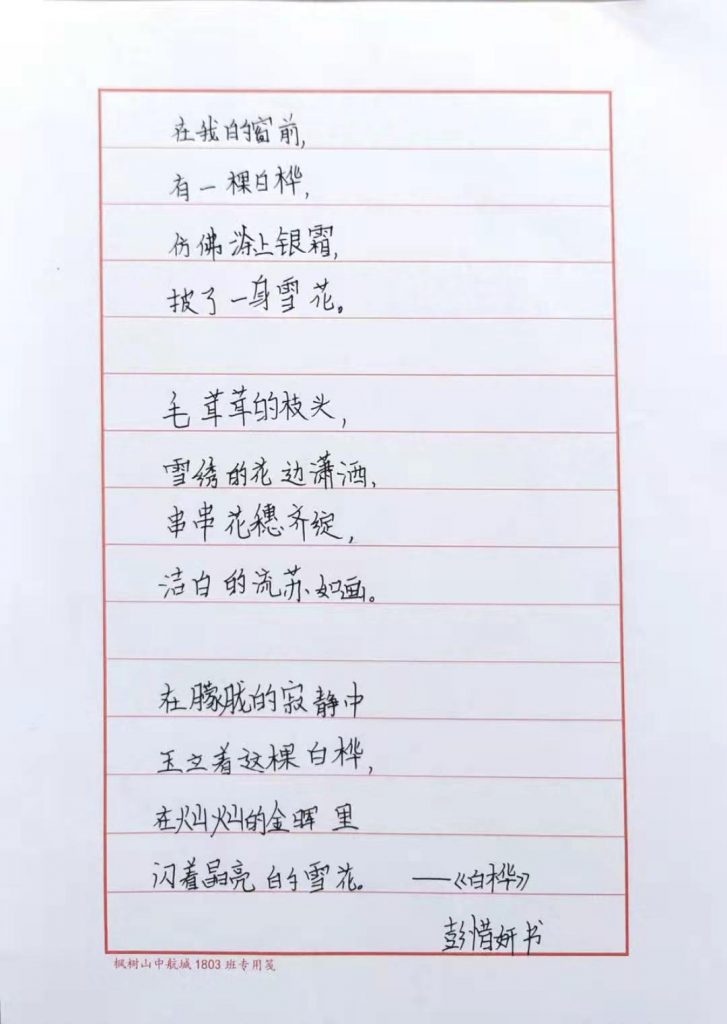 在我的窗前，
有一棵白桦，
仿佛涂上银霜，
披了一身雪花。
毛茸茸的枝头，
雪绣的花边潇洒，
串串花穗齐绽，
洁白的流苏如画。
在朦胧的寂静中
玉立着这棵白桦，
在灿灿的金晖里
闪着晶亮的雪花。 ——《白桦》
彭惜妍书
枫树山中航城1803班专用笺